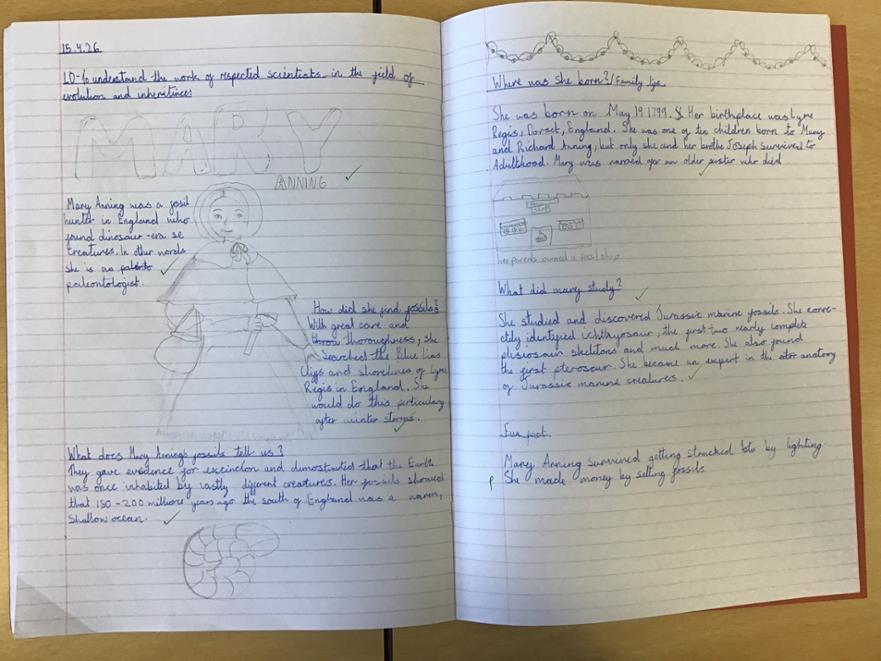 15.4.26
LO-to understand the work of respected scientists in the field of
evolution and inheritines
MARY
ANNING
Mary Anning was a fossil
hunter in England who
found dinosaur-era se
creatures. In other words
she is an
paleontologist.
How did she find fossils?
With great care and
throw thoroughness, she
searched the Blue Lias
Cliffs and shorelines of Lyme
Regis in England. She
would do this particulary
after winter storms.
What does Mary Anning's fossils tell us?
They gave evidence for excinction and demonstrated that the Earth
was once inhabited by vastly different creatures. Her fossils showed
that 150-200 millions years ago the south of England was a warm,
shallow ocean.
Where was she born?/Family life
She was born on May 19 1799. Her birthplace was Lyme
Regis, Dorset, England. She was one of ten children born to Mary
and Richard Anning, but only she and her brothe Joseph survived to
Adulthood. Mary was named for an older sister who died
her parents owned a fossil shop
What did mary study?
She studied and discovered Jurassic marine fossils. She corre-
ctly identifyed ichthyosaur, the first two nearly complete
plesiosaur skelitons and much more. She also found
the first pterosaur. She became an expert in the anatomy
of Jurassic marine creatures.
Fun fact
Mary Anning survived getting strucked by lighting.
She made money by selling fossils